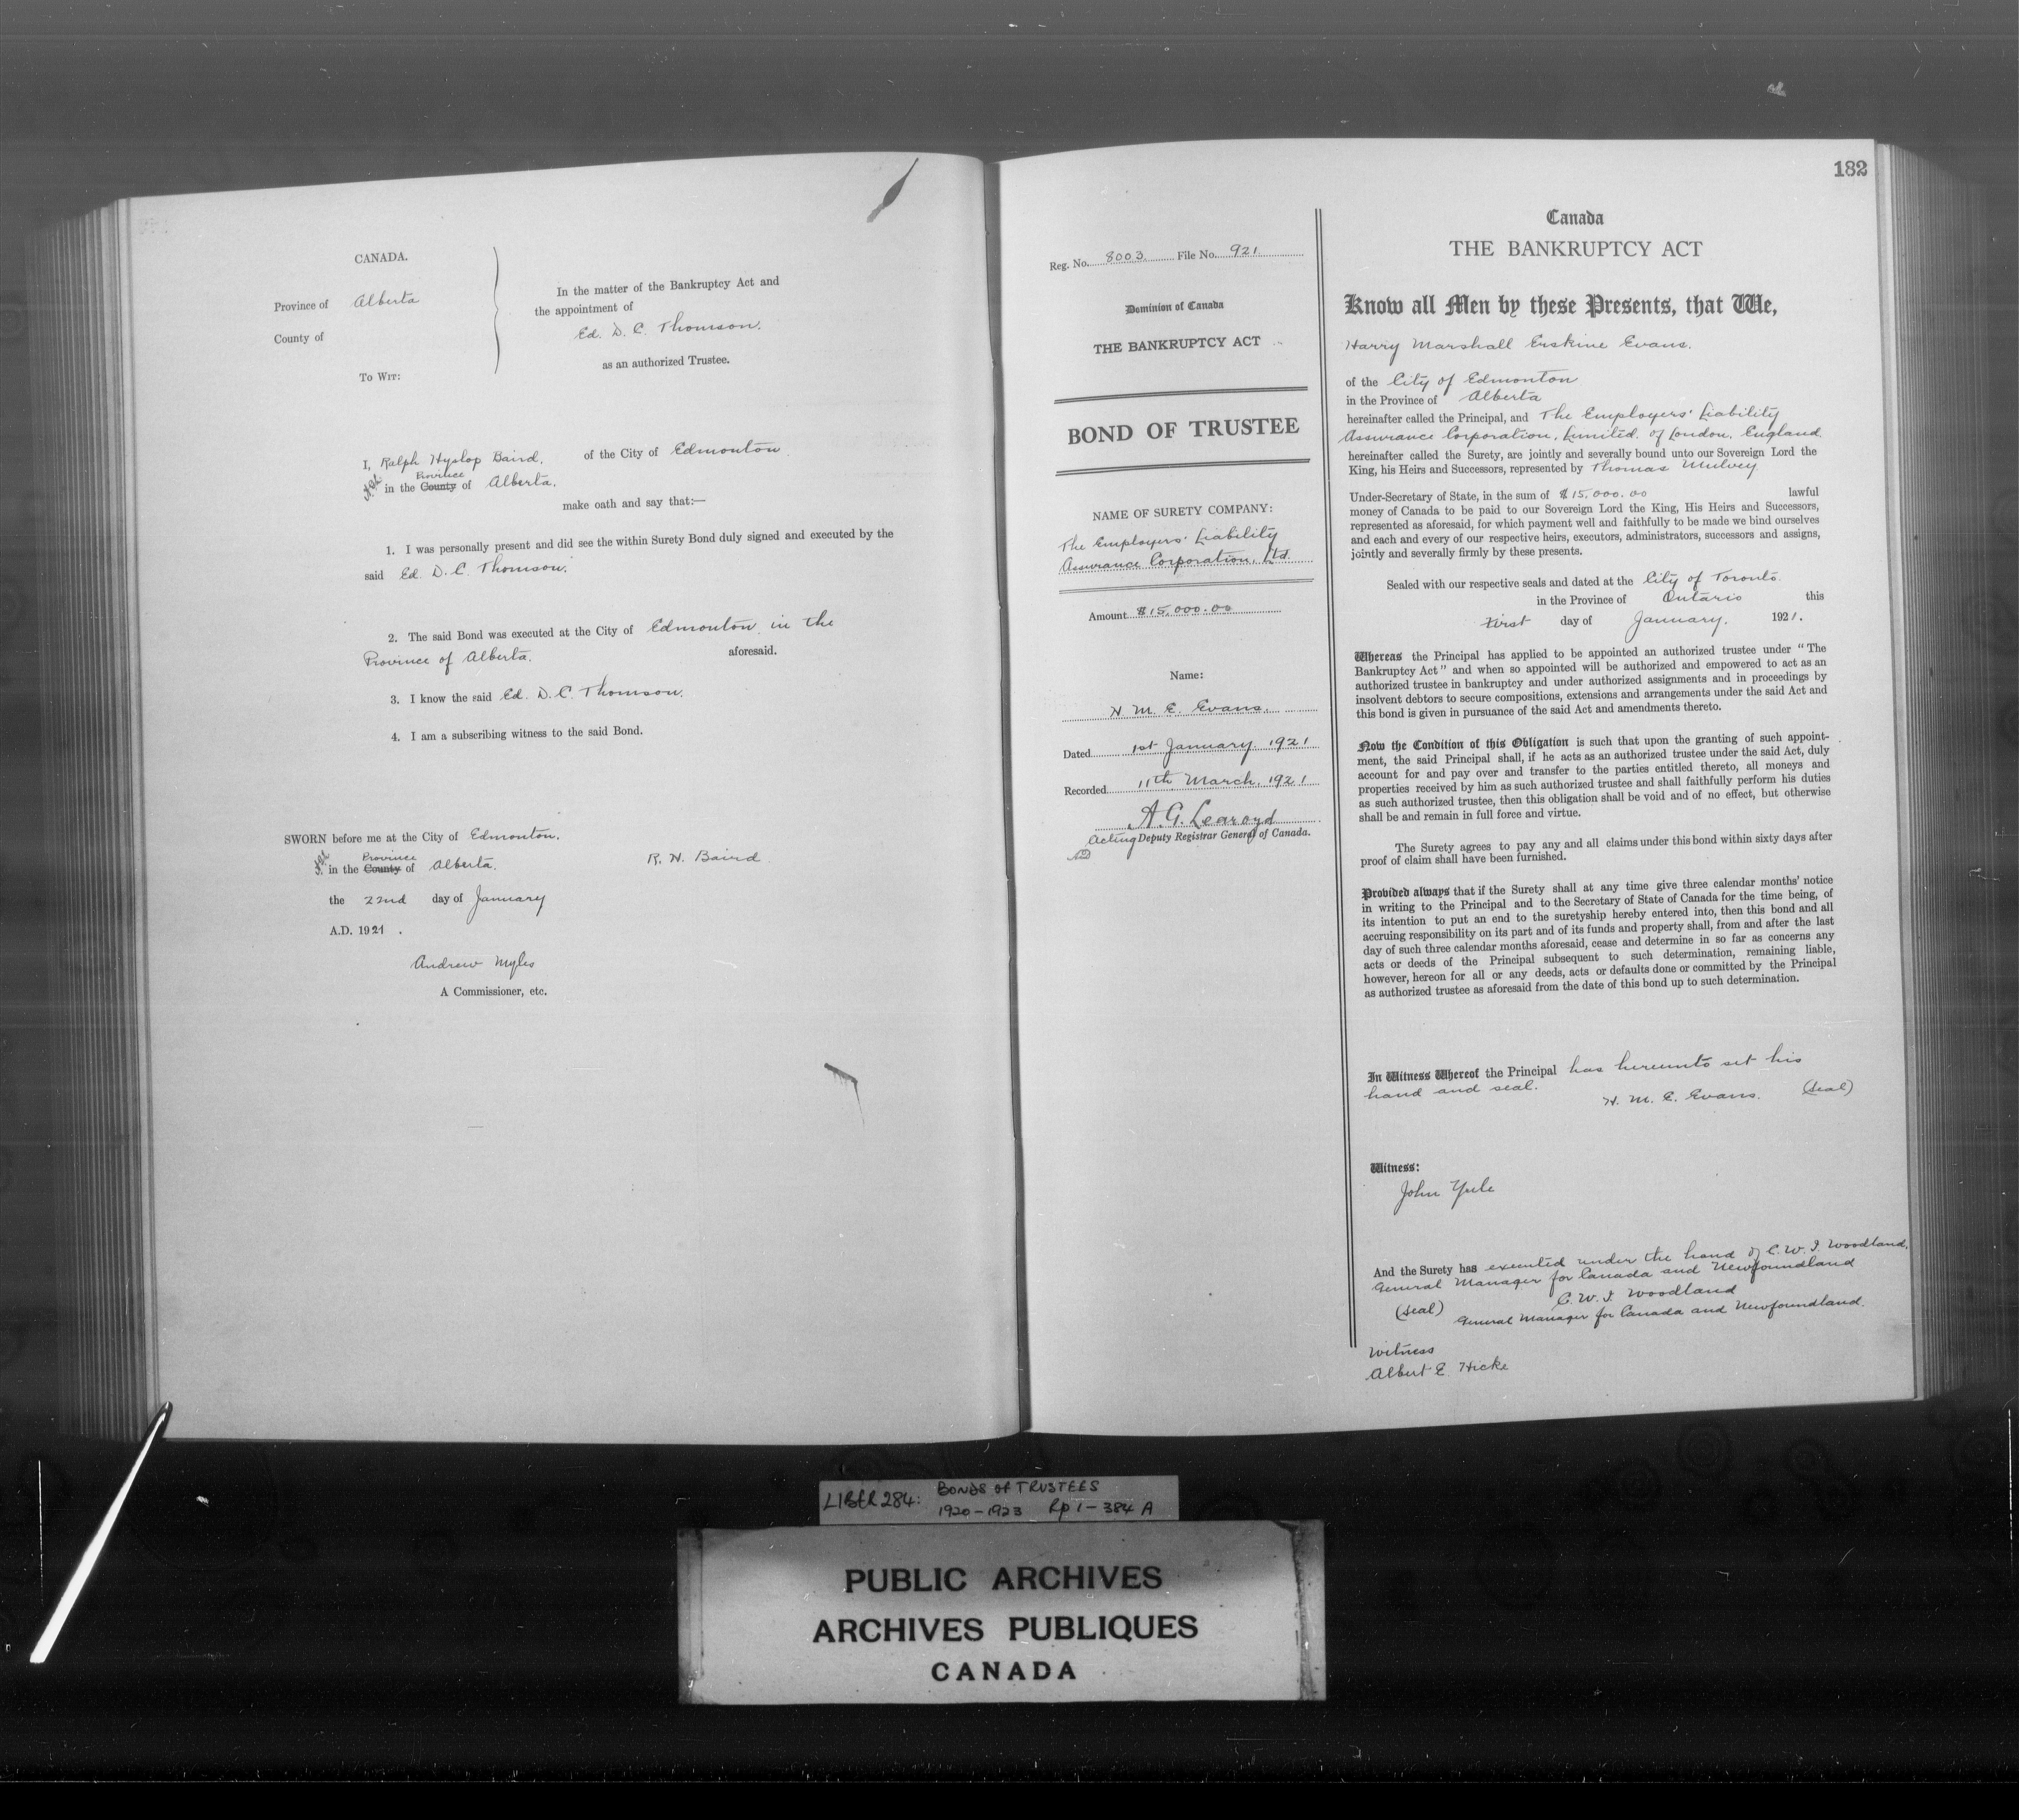 CANADA.
Province of Alberta
County of
To Wit:
In the matter of the Bankruptcy Act and
the appointment of
Ed. D. C. Thomson.
as an authorized Trustee.
I, Ralph Hyslop Baird, of the City of Edmonton
Province
in the County of Alberta.
make oath and say that:—
1. I was personally present and did see the within Surety Bond duly signed and executed by the
said Ed. D. C. Thomson.
2. The said Bond was executed at the City of Edmonton in the
Province of Alberta. aforesaid.
3. I know the said Ed. D. C. Thomson.
4. I am a subscribing witness to the said Bond.
SWORN before me at the City of Edmonton.
Province
in the County of Alberta.
the 22nd day of January
A.D. 1921 .
R. H. Baird.
Andrew Myles
A Commissioner, etc.
182
Reg. No. 8003. File No. 921
Dominion of Canada
THE BANKRUPTCY ACT
BOND OF TRUSTEE
NAME OF SURETY COMPANY:
The Employers' Liability
Assurance Corporation, Ltd.
Amount $15,000.00
Name:
H. M. E. Evans.
Dated 1st January 1921
Recorded 11th March, 1921
A. G. Learoyd
Acting Deputy Registrar General of Canada.
Canada
THE BANKRUPTCY ACT
Know all Men by these Presents, that We,
Harry Marshall Erskine Evans.
of the City of Edmonton
in the Province of Alberta
hereinafter called the Principal, and The Employers' Liability
Assurance Corporation, Limited. of London, England.
hereinafter called the Surety, are jointly and severally bound unto our Sovereign Lord the
King, his Heirs and Successors, represented by Thomas Mulvey
Under-Secretary of State, in the sum of $15,000.00 lawful
money of Canada to be paid to our Sovereign Lord the King, His Heirs and Successors,
represented as aforesaid, for which payment well and faithfully to be made we bind ourselves
and each and every of our respective heirs, executors, administrators, successors and assigns,
jointly and severally firmly by these presents.
Sealed with our respective seals and dated at the City of Toronto.
in the Province of Ontario this
First day of January. 1921.
Whereas the Principal has applied to be appointed an authorized trustee under "The
Bankruptcy Act" and when so appointed will be authorized and empowered to act as an
authorized trustee in bankruptcy and under authorized assignments and in proceedings by
insolvent debtors to secure compositions, extensions and arrangements under the said Act and
this bond is given in pursuance of the said Act and amendments thereto.
Now the Condition of this Obligation is such that upon the granting of such appoint-
ment, the said Principal shall, if he acts as an authorized trustee under the said Act, duly
account for and pay over and transfer to the parties entitled thereto, all moneys and
properties received by him as such authorized trustee and shall faithfully perform his duties
as such authorized trustee, then this obligation shall be void and of no effect, but otherwise
shall be and remain in full force and virtue.
The Surety agrees to pay any and all claims under this bond within sixty days after
proof of claim shall have been furnished.
Provided always that if the Surety shall at any time give three calendar months' notice
in writing to the Principal and to the Secretary of State of Canada for the time being, of
its intention to put an end to the suretyship hereby entered into, then this bond and all
accruing responsibility on its part and of its funds and property shall, from and after the last
day of such three calendar months aforesaid, cease and determine in so far as concerns any
acts or deeds of the Principal subsequent to such determination, remaining liable,
however, hereon for all or any deeds, acts or defaults done or committed by the Principal
as authorized trustee as aforesaid from the date of this bond up to such determination.
In Witness Whereof the Principal has hereunto set his
hand and seal.
H. M. E. Evans. (seal)
Witness:
John Yule
And the Surety has executed under the hand of C. W. I. Woodland,
General Manager for Canada and Newfoundland
C. W. I. Woodland
(seal) General Manager for Canada and Newfoundland.
Witness
Albert E. Hicks
LIBER 284: BONDS OF TRUSTEES
1920-1923 Rp 1-384 A
PUBLIC ARCHIVES
ARCHIVES PUBLIQUES
CANADA